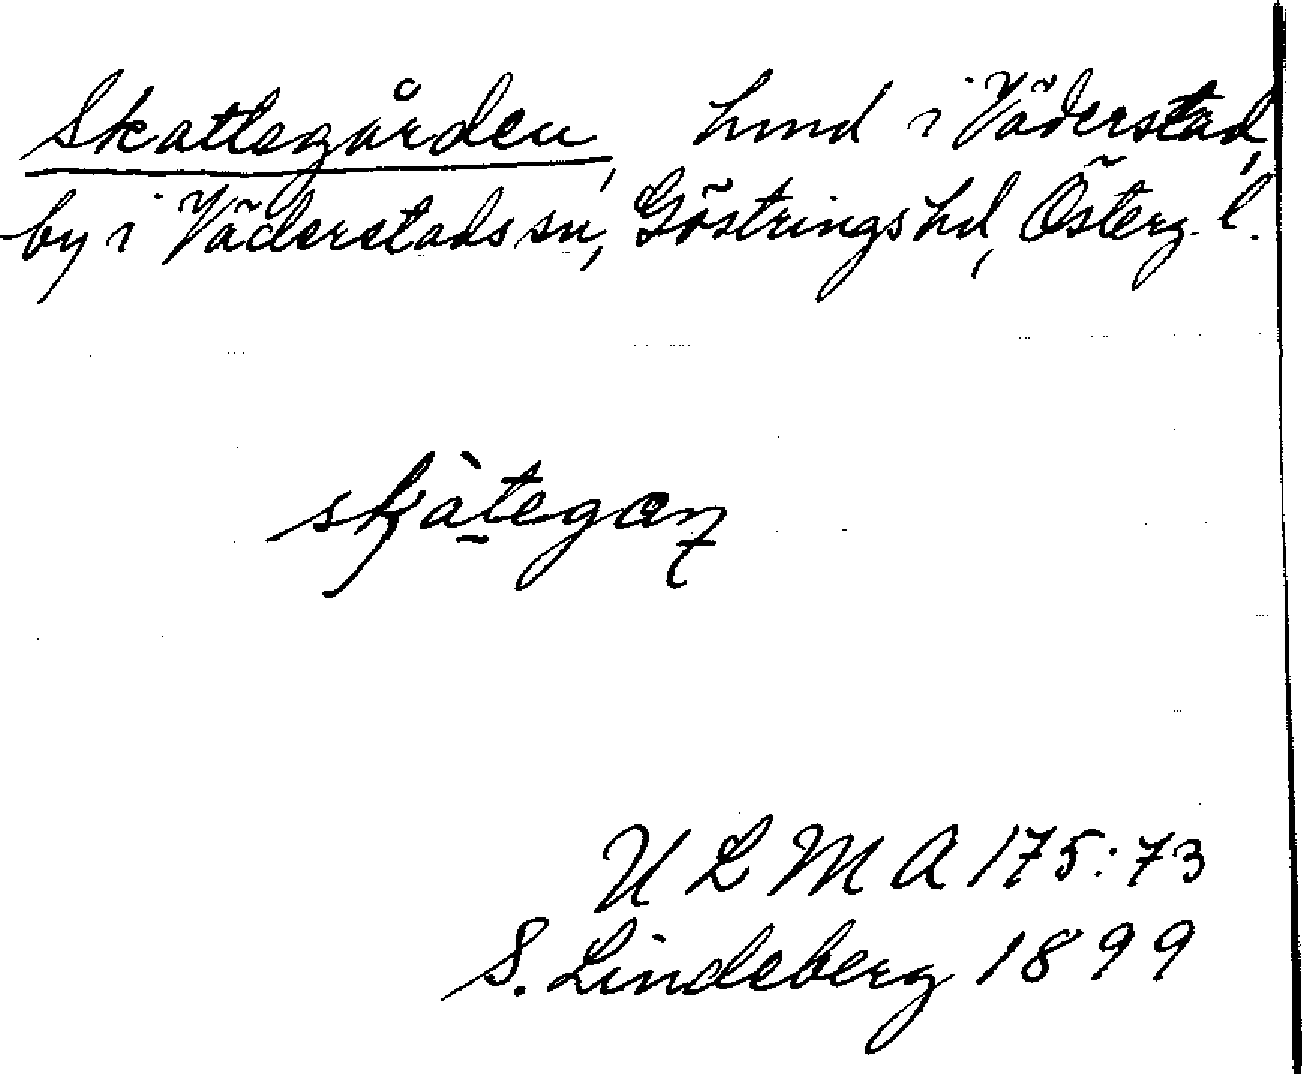 Skattegården, hmd i Väderstad,
by i Väderstads sn, Göstrings hd, Österg. l.
skàtegaɳ
U L M A 175:73
S. Lindeberg 1899